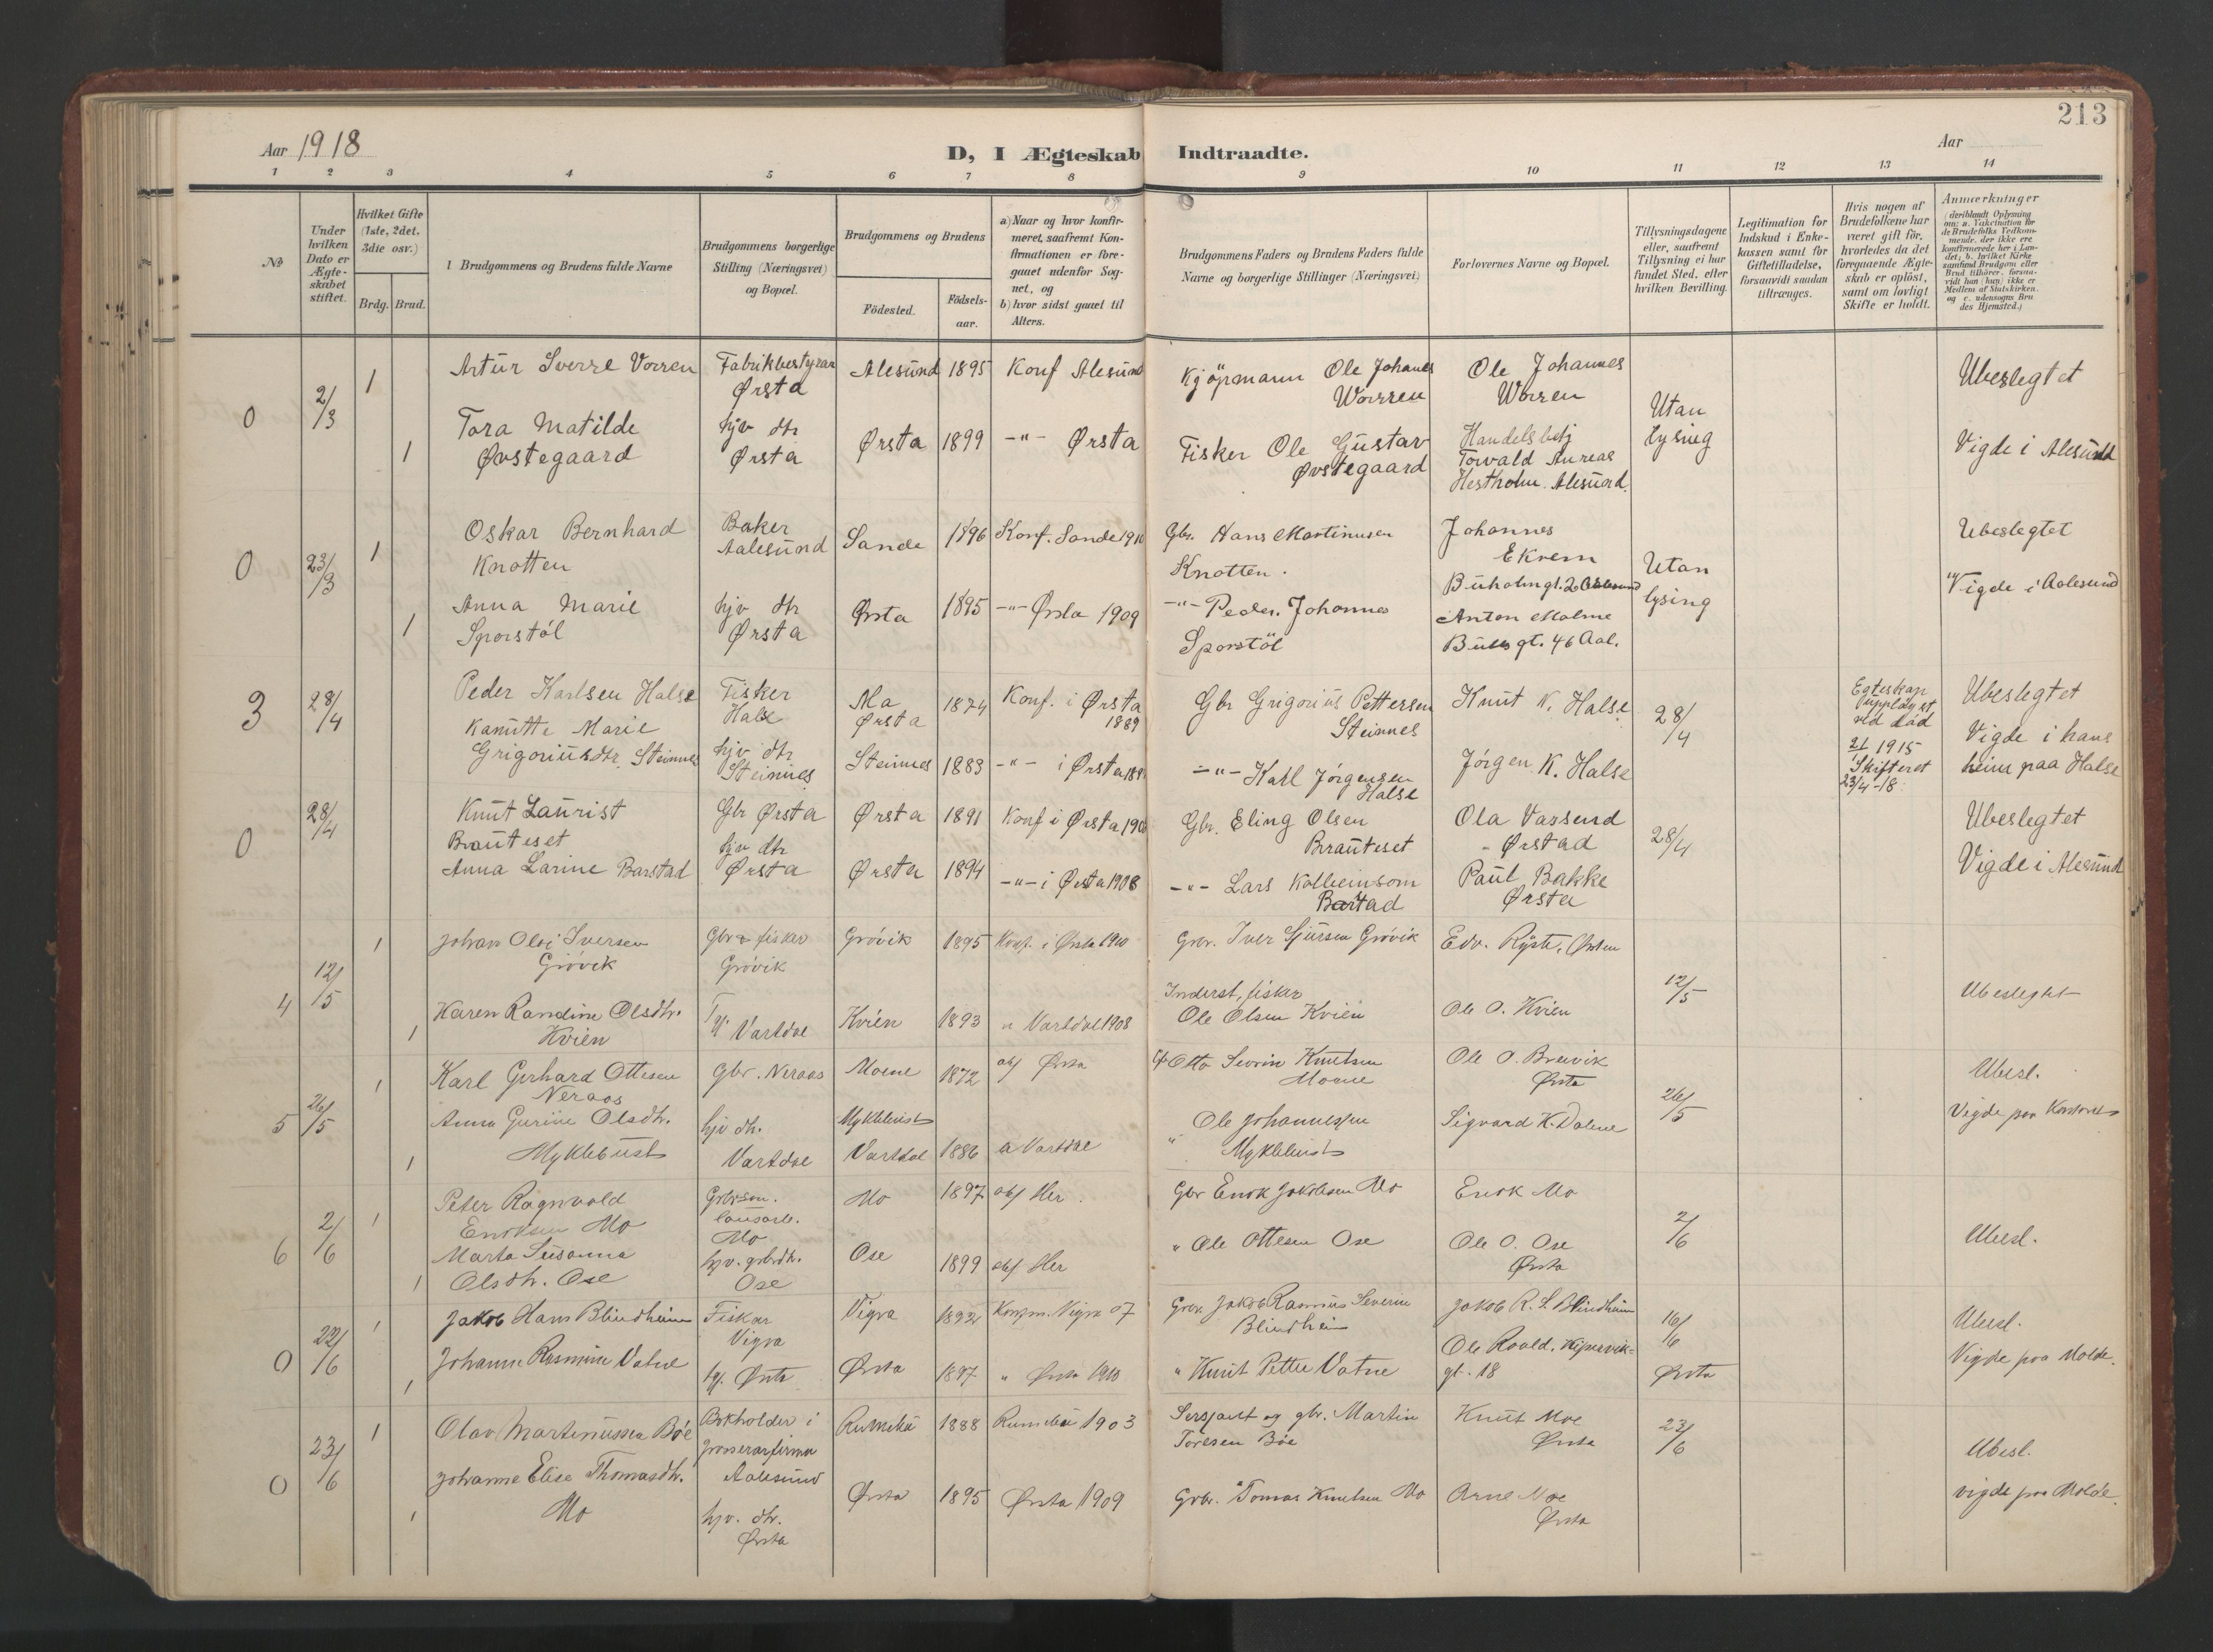 213
Aar 1918
D, I Ægteskab Indtraadte.
Aar
1 2 3 4 5 6 7 8 9 10 11 12 13 14
No
Under hvilken Dato er Ægteskabet stiftet.
Hvilket Gifte (1ste, 2det, 3die osv.)
Brdg. Brud.
Brudgommens og Brudens fulde Navne
Brudgommens borgerlige Stilling (Næringsvei) og Bopæl.
Brudgommens og Brudens
Födested.
Födsels-aar.
a) Naar og hvor konfirmeret, saafremt Konfirmationen er foregaaet udenfor Sognet, og
b) hvor sidst gaaet til Alters.
Brudgommens Faders og Brudens Faders fulde Navne og borgerlige Stillinger (Næringsvei)
Forlovernes Navne og Bopæl.
Tillysningsdagene eller, saafremt Tillysning ei har fundet Sted, efter hvilken Bevilling.
Legitimation for Indskud i Enkekassen samt for Giftetilladelse, forsaavidt saadan tiltrænges.
Hvis nogen af Brudefolkene har været gift för, hvorledes da det foregaaende Ægteskab er oplöst, samt om lovligt Skifte er holdt.
Anmærkninger
(deriblandt Oplysning om: a. Vakcination for de Brudefolks Vedkommende, der ikke ere konfirmerede her i Landet; b. hvilket Kirkesamfund Brudgom eller Brud tilhörer, forsaavidt han (hun) ikke er Medlem af Statskirken, og c. udensogns Brudes Hjemsted.)
0 2/3 1 Artur Sverre Vorren Fabrikbestyrar Ørsta Alesund 1895 Konf Alesund Kjöpmann Ole Johanes Worren Ole Johannes Worren Utan lysing Ubeslegtet
1 Tora Matilde Øvstegaard hjv dtr Ørsta Ørsta 1899 -"- Ørsta Fisker Ole Gustav Øvstegaard Handelsbetj Torvald Andreas Hestholm Alesund. Vigde i Alesund
0 23/3 1 Oskar Bernhard Knotten Baker Aalesund Sande 1896 Konf. Sande 1910 Gbr. Hans Martinusen Knotten. Johannes Ekrem Buholmgt. 2 Aalesund Utan lysing Ubeslegtet
1 Anna Marie Sporstöl hjv dtr Ørsta Ørsta 1895 -"- Ørsta 1909 -"- Peder Johannes Sporstöl Anton Malme Bulls gt. 46 Aal. Vigde i Aalesund
3 28/4 Peder Karlsen Halse Fisker Halse Ma Ørsta 1874 Konf. i Ørsta 1889 Gbr Grigorius Pettersen Steinnes Knut K. Halse 28/4 Egteskap upplöyst ved död 21 1915 Skifteret 23/4-18. Ubeslegtet
Kanutte Marie Grigoriusdtr. Steinnes hjv dtr Steinnes Steinnes 1883 -"- i Ørsta -"- Karl Jörgensen Halse Jörgen K. Halse Vigde i hans heim paa Halse
0 28/4 Knut Laurist Brauteset Gbr Ørsta Ørsta 1891 Konf i Ørsta Gbr. Eling Olsen Brauteset Ola Vassend - Ørstad 28/4 Ubeslegtet
Anna Larine Barstad hjv dtr Ørsta Ørsta 1894 -"- i Ørsta 1908 -"- Lars Kolbeinson Barstad Paul Bakke Ørsta Vigde i Alesund
4 12/5 1 Johan Olai Iversen Grövik Gbr & fisker Grövik Grövik 1895 Konf. i Ørsta 1910 Grbr. Iver Sjursen Grövik Edv. Ryste, Ørsta 12/5 Ubeslegtet
1 Karen Randine Olsdtr. Kvien Vartdal Kvien 1893 " Vartdal 1908 Inderst, fisker Ole Olsen Kvien Ole O. Kvien
5 26/5 1 Karl Gerhard Ottesen Neraas gbr. Neraas Moene 1872 abf Ørsta Otto Severin Knutsen Moene Ole O. Breivik Ørsta 26/5 Ubesl.
1 Anna Gurine Olsdtr. Myklebust hjv dtr. Vartdal Myklebust Vartdal 1886 a Vartdal " Ole Johannessen Myklebust Sigvard K. Dalene Vigde paa Kontoret
6 2/6 1 Peter Ragnvald Enoksen Mo Grbrson. lausarb. Mo Mo 1897 abf Her. Gbr Enok Jakobsen Mo Enok Mo 2/6 Ubesl.
1 Marta Susanna Olsdtr. Ose hjv. grbrdtr. Ose Ose 1899 abf Her " Ole Ottesen Ose Ole O. Ose Ørsta
0 22/6 1 Jakob Hans Blindheim Fiskar Vigra Vigra 1892 Konfm. Vigra 07 Grbr. Jakob Rasmus Severin Blindheim Jakob R. S. Blindheim 16/6 Ørsta Ubesl.
1 Johanne Rasmine Vatne hj. Ørsta Ørsta 1897 " Ørsta 1910 " Knut Petter Vatne Ole Roald, Kipervik-gt. 18 Vigde paa Molde.
0 23/6 1 Olav Martinussen Böe Bokholder i grosserarfirma Aalesund 1888 1903 Sersjant og gbr. Martin Toresen Böe Knut Moe Ørsta 23/6 Ubesl.
1 Johanne Elise Thomasdtr. Mo hjv. dtr. Ørsta Ørsta 1895 Ørsta 1909 Grbr. Tomas Knutsen Mo Arne Moe Ørsta vigde paa Molde.